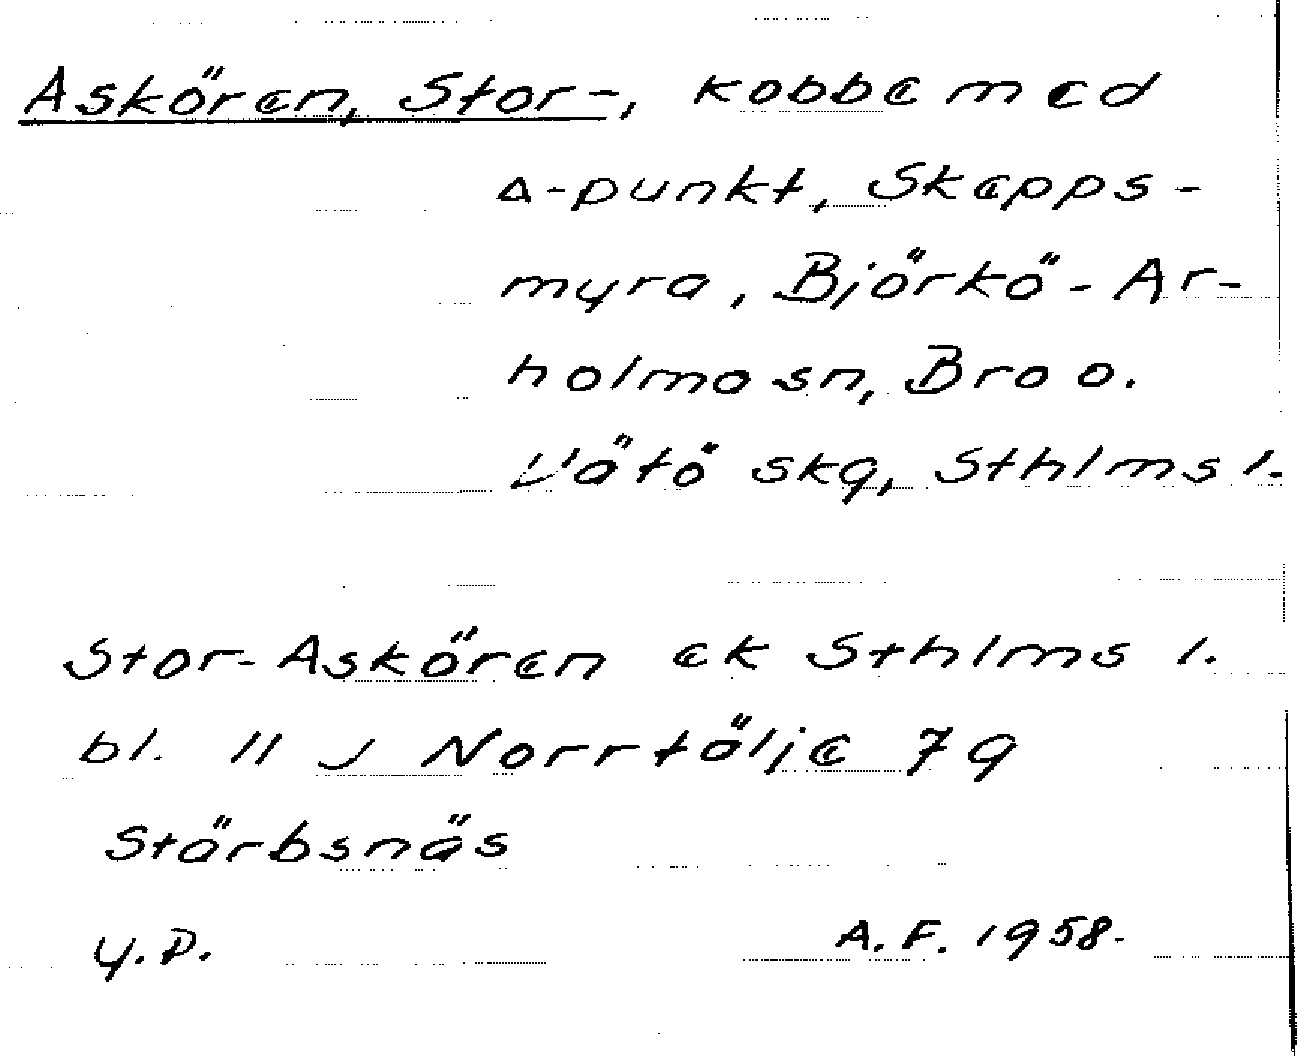 Askören, Stor-, kobbe med
△-punkt, Skepps-
myra, Björkö-Ar-
holma sn, Bro o.
Vätö skg, Sthlms l.
Stor-Askören ek Sthlms l.
bl. 11 J Norrtälje 79
Stärbsnäs
y.D. A.F. 1958.